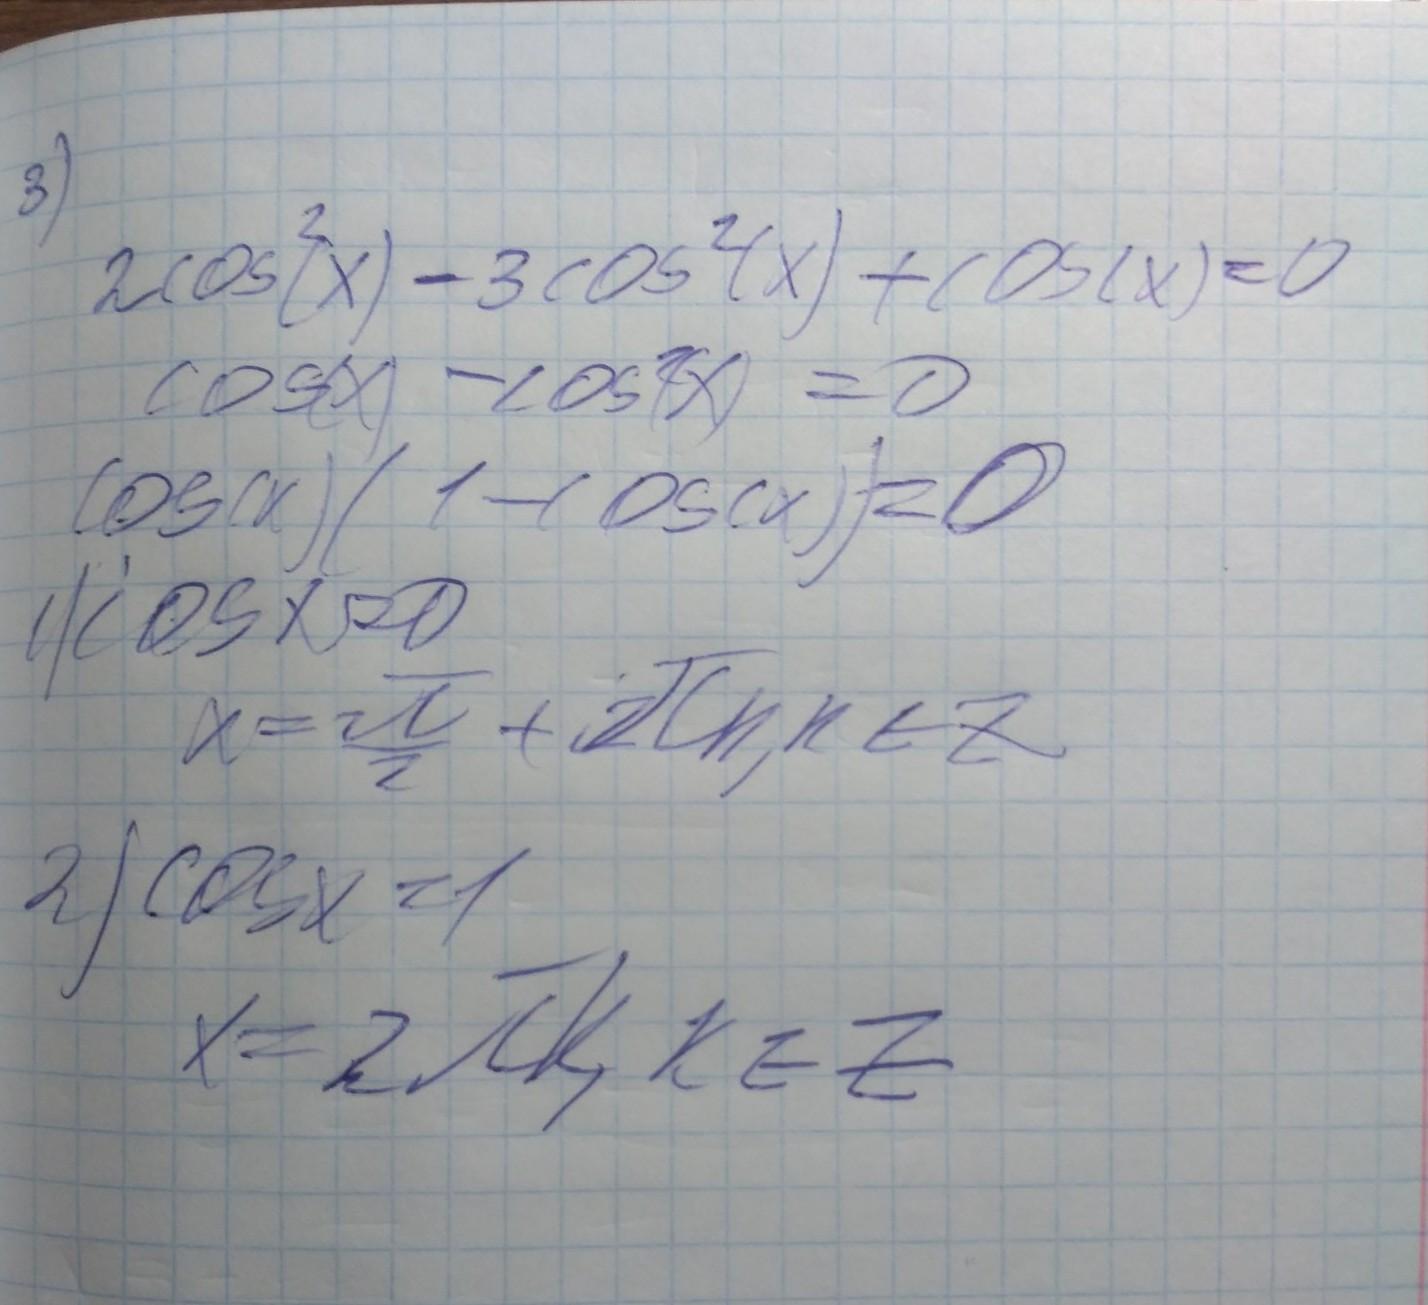 3)
2cos²(x) - 3cos²(x) + cos(x) = 0
cos(x) - cos²(x) = 0
cos(x)(1 - cos(x)) = 0
1) cos x = 0
x = π/2 + 2πk, k ∈ Z
2) cos x = 1
x = 2πk, k ∈ Z